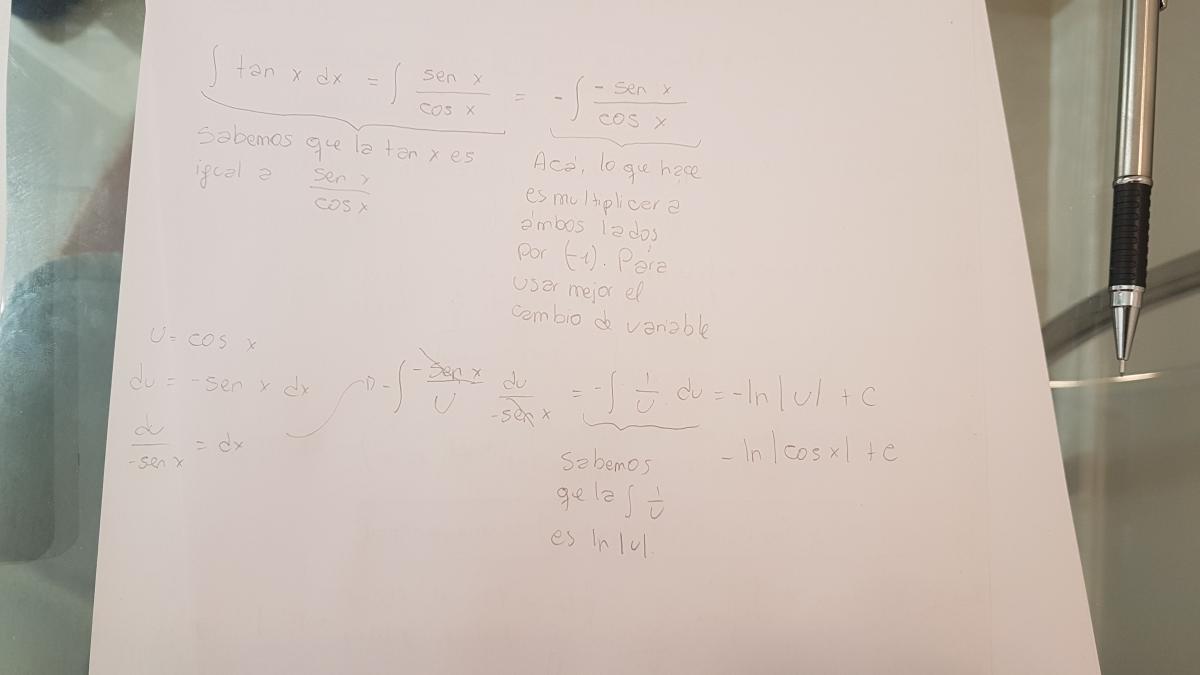 ∫ tan x dx = ∫ sen x / cos x = -∫ -sen x / cos x
Sabemos que la tan x es
igual a sen x / cos x
Acá, lo que hace
es multiplicar a
ambos lados
por (-1). Para
usar mejor el
cambio de variable
U = cos x
du = -sen x dx
du / -sen x = dx
-∫ -sen x / U du / -sen x = -∫ 1/U du = -ln|U| + C
-ln|cos x| + C
Sabemos
que la ∫ 1/U
es ln|U|.